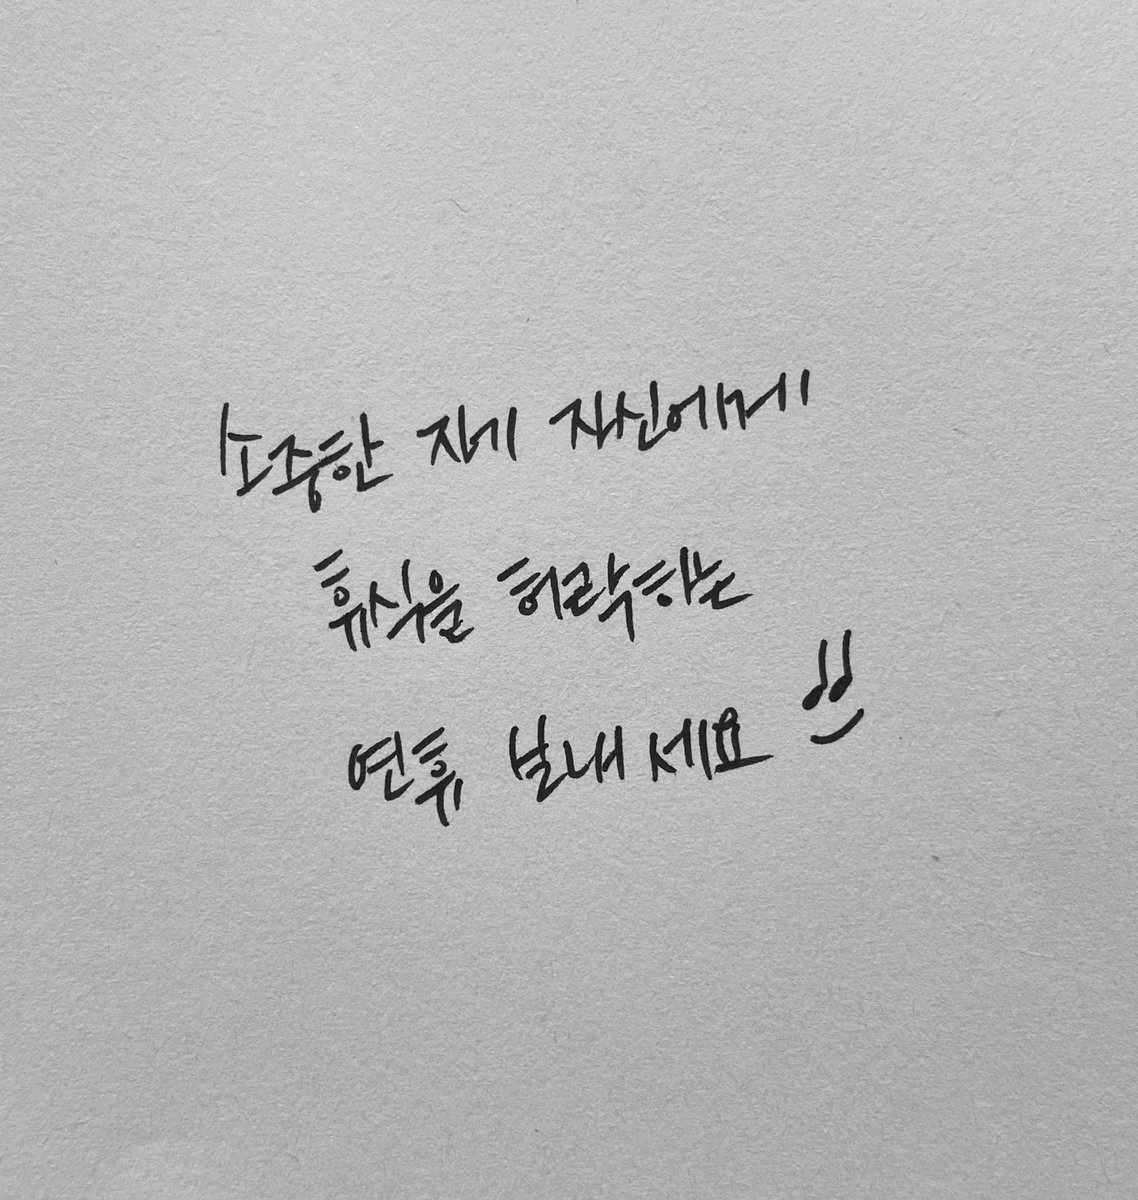 소중한 자기 자신에게
휴식을 허락하는
연휴 보내세요